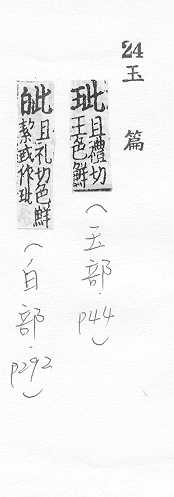 24
玉篇
玼且禮切
玉色鮮
(玉部.P44)
皉且礼切色鮮
潔或作玼
(白部.P292)